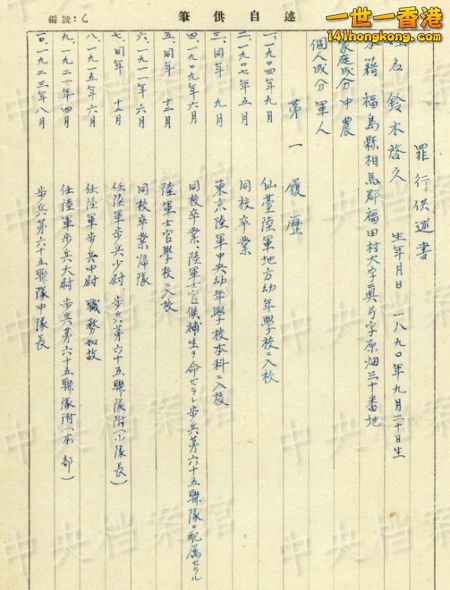 編號：6
述自供筆
一世一香港
141hongkong.com
罪行供述書
姓名 鈴木啓久 生年月日 一八九〇年九月二十日生
原籍 福島縣相馬郡福田村大字真弓字原畑三十番地
家庭成分 中農
個人成分 軍人
第一 履歷
一、一九〇四年九月 仙臺陸軍地方幼年學校ニ入校
二、一九〇七年五月 同校卒業
三、同年 九月 東京陸軍中央幼年學校本科ニ入校
四、一九〇九年六月 同校卒業、陸軍士官候補生ヲ命ゼラレ步兵第六十五聯隊ニ配属セラル
五、同年 十二月 陸軍士官學校ニ入校
六、一九一一年六月 同校卒業歸隊
七、同年 十二月 任陸軍步兵少尉 步兵第六十五聯隊附（小隊長）
八、一九一五年六月 任陸軍步兵中尉 職務如故
九、一九二一年四月 任陸軍步兵大尉 步兵第六十五聯隊附（本部）
一〇、一九二三年八月 步兵第六十五聯隊中隊長
中央档案馆
中央档案馆
中央档案馆